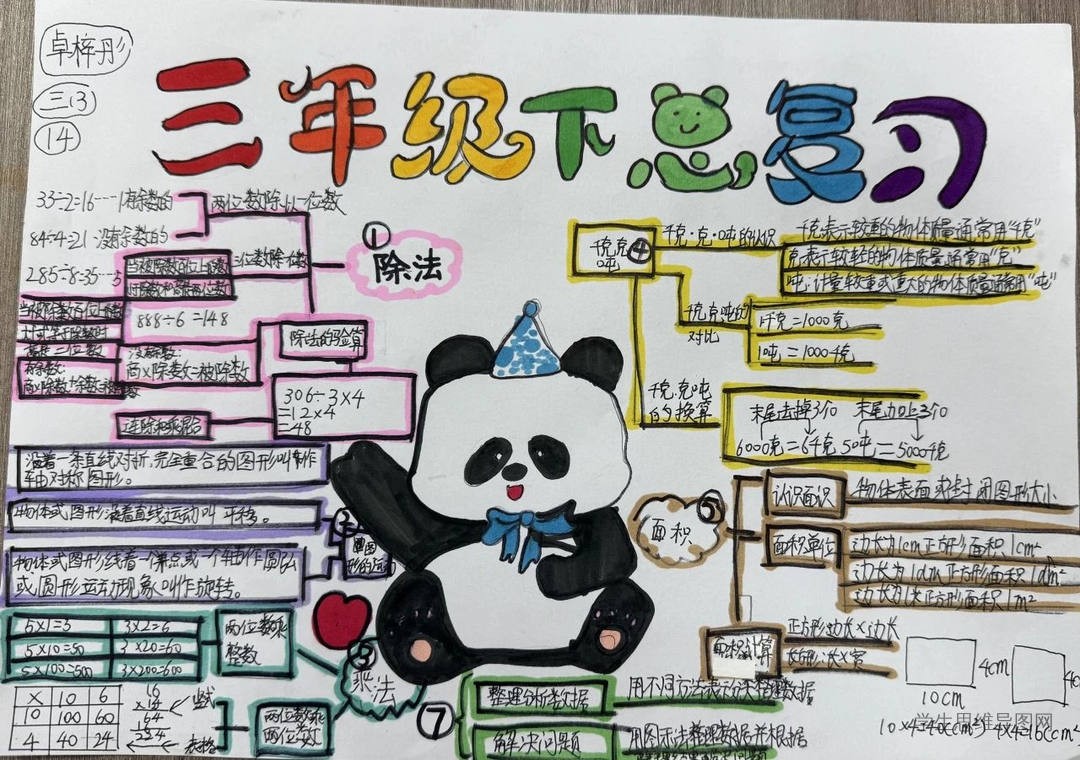 卓梓彤
三(3)
14
三年级下总复习
33÷2=16……1有余数的
84÷4=21 没有余数的
两位数除以一位数
285÷8=35…5
当被除数
三位数除一位数
888÷6=148
①
除法
除法的验算
没有余数:
商×除数=被除数
有余数:
306÷3×4
=12×4
=48
连除和乘混合
沿着一条直线对折,完全重合的图形叫制作
轴对称图形。
物体或图形沿着直线运动叫 平移。
物体或图形绕着一个点或一个轴作圆弧
或圆形运动现象叫作旋转。
5×1=5 3×2=6
5×10=50 3×20=60
5×100=500 3×200=600
两位数乘
整数
③
乘法
× 10 6
10 100 60
4 40 24
16
×14
64
竖式
表格
两位数乘
两位数
千克克
吨
④
千克·克·吨的认识
千克:表示较重的物体质量通常用“千克”
克:表示较轻的物体质量通常用“克”
吨:计量较重或重大的物体质量通常用“吨”
千克克吨的
对比
1千克=1000克
1吨=1000千克
千克.克吨
的的换算
末尾去掉3个0 末尾加上3个0
6000克=6千克 50吨=5000千克
⑤
面积
认识面识
物体表面或封闭图形大小
面积单位
边长为1cm正方形面积1cm²
边长为1dm正方形面积1dm²
边长为1米正方形面积1m²
面积计算
正方形:边长×边长
长方形:长×宽
4cm
10cm
⑦
整理分析数据
解决问题
用图示法整理数据并根据
学生用维导图网